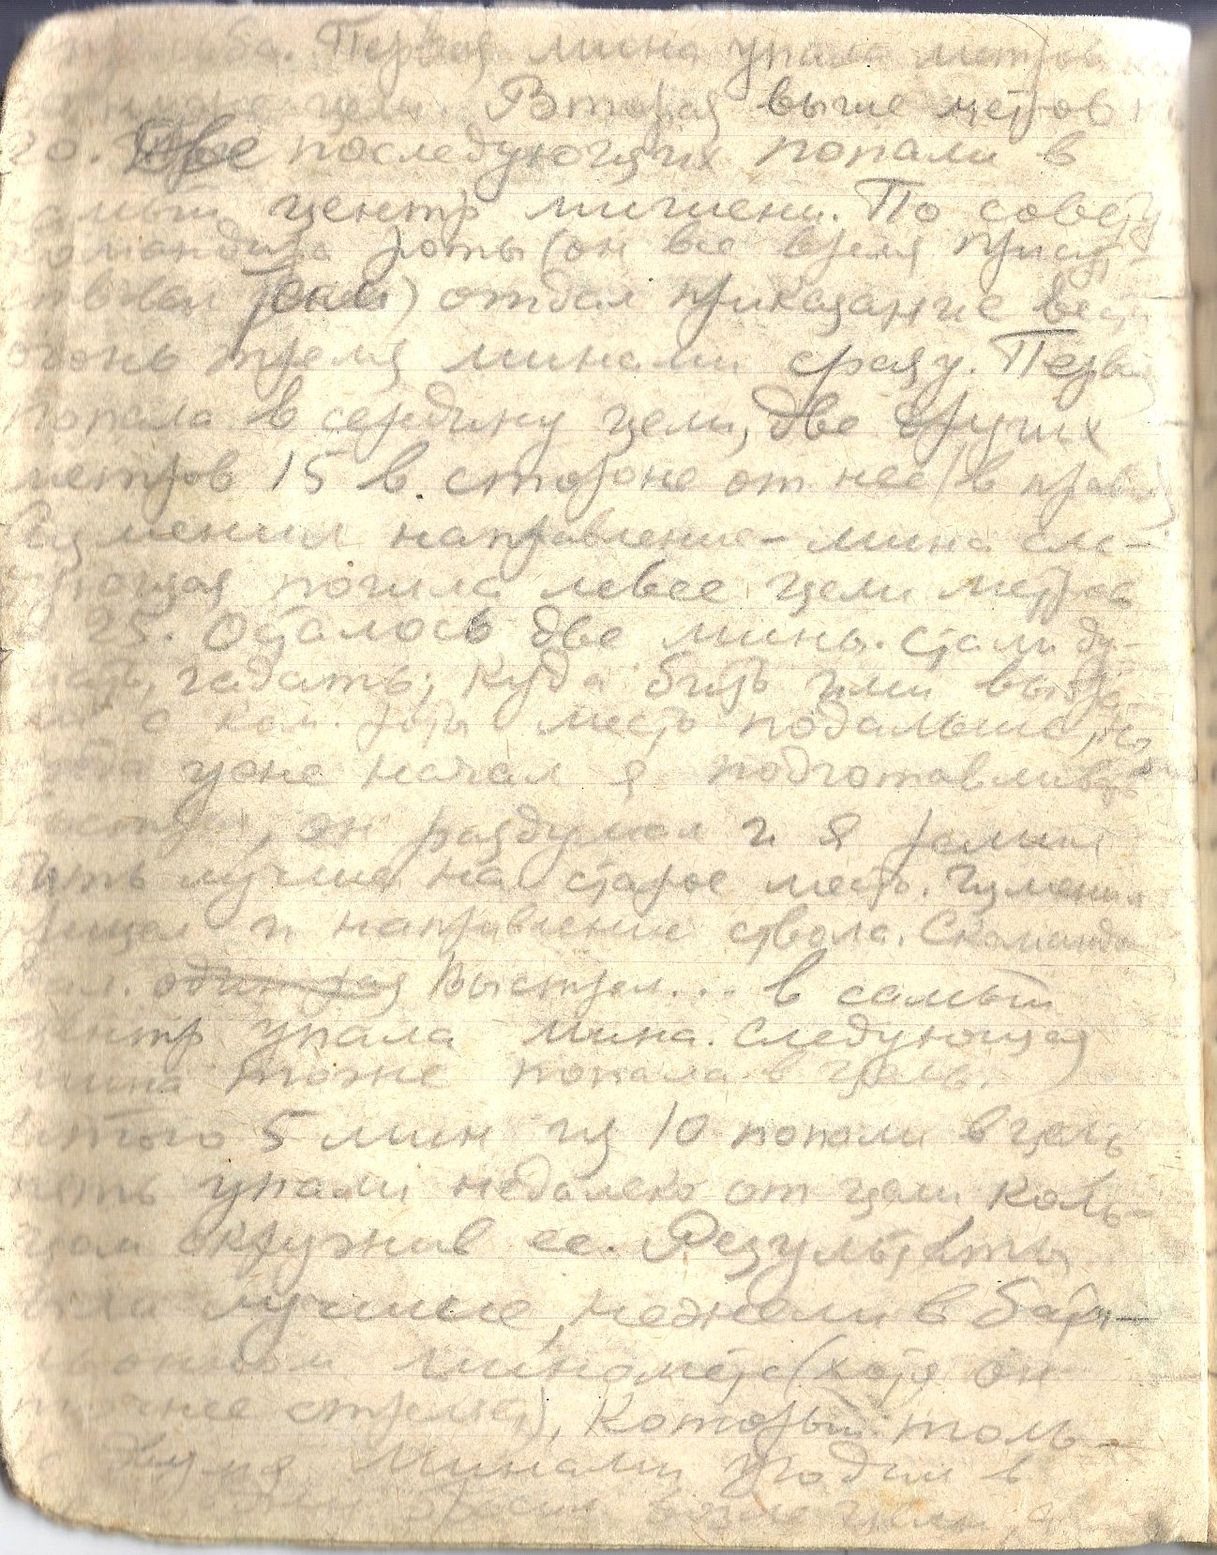 стрельба. Первая мина упала метров
ниже цели. Вторая выше метров на
20. Две последующих попали в
самый центр мишени. По совету
командира роты (он все время присут-
ствовал) отдал приказание вести
огонь тремя минами сразу. Первая
попала в середину цели, две других
метров 15 в стороне от нее (в право)
Изменил направление – мина сле-
дующая пошла левее цели метров
25. Осталось две мины. Стали ду-
мать, гадать, куда бить или
ком. роты место подальше, но
когда уже начал я подготавливать
выстрел, он раздумал и я решил
бить лучше на старое место. Изменил
прицел и направление ствола. Скомандо-
вал. один раз Выстрел... в самый
центр упала мина. Следующая
мина тоже попала в цель.
Итого 5 мин из 10 попали в цель
пять упали недалеко от цели коль-
цом окружив ее. Результаты
были лучшие, нежели в баталь-
онном миномете (хотя он
точнее стреляет), который толь-
ко двумя минами угодил в
возле цели, а